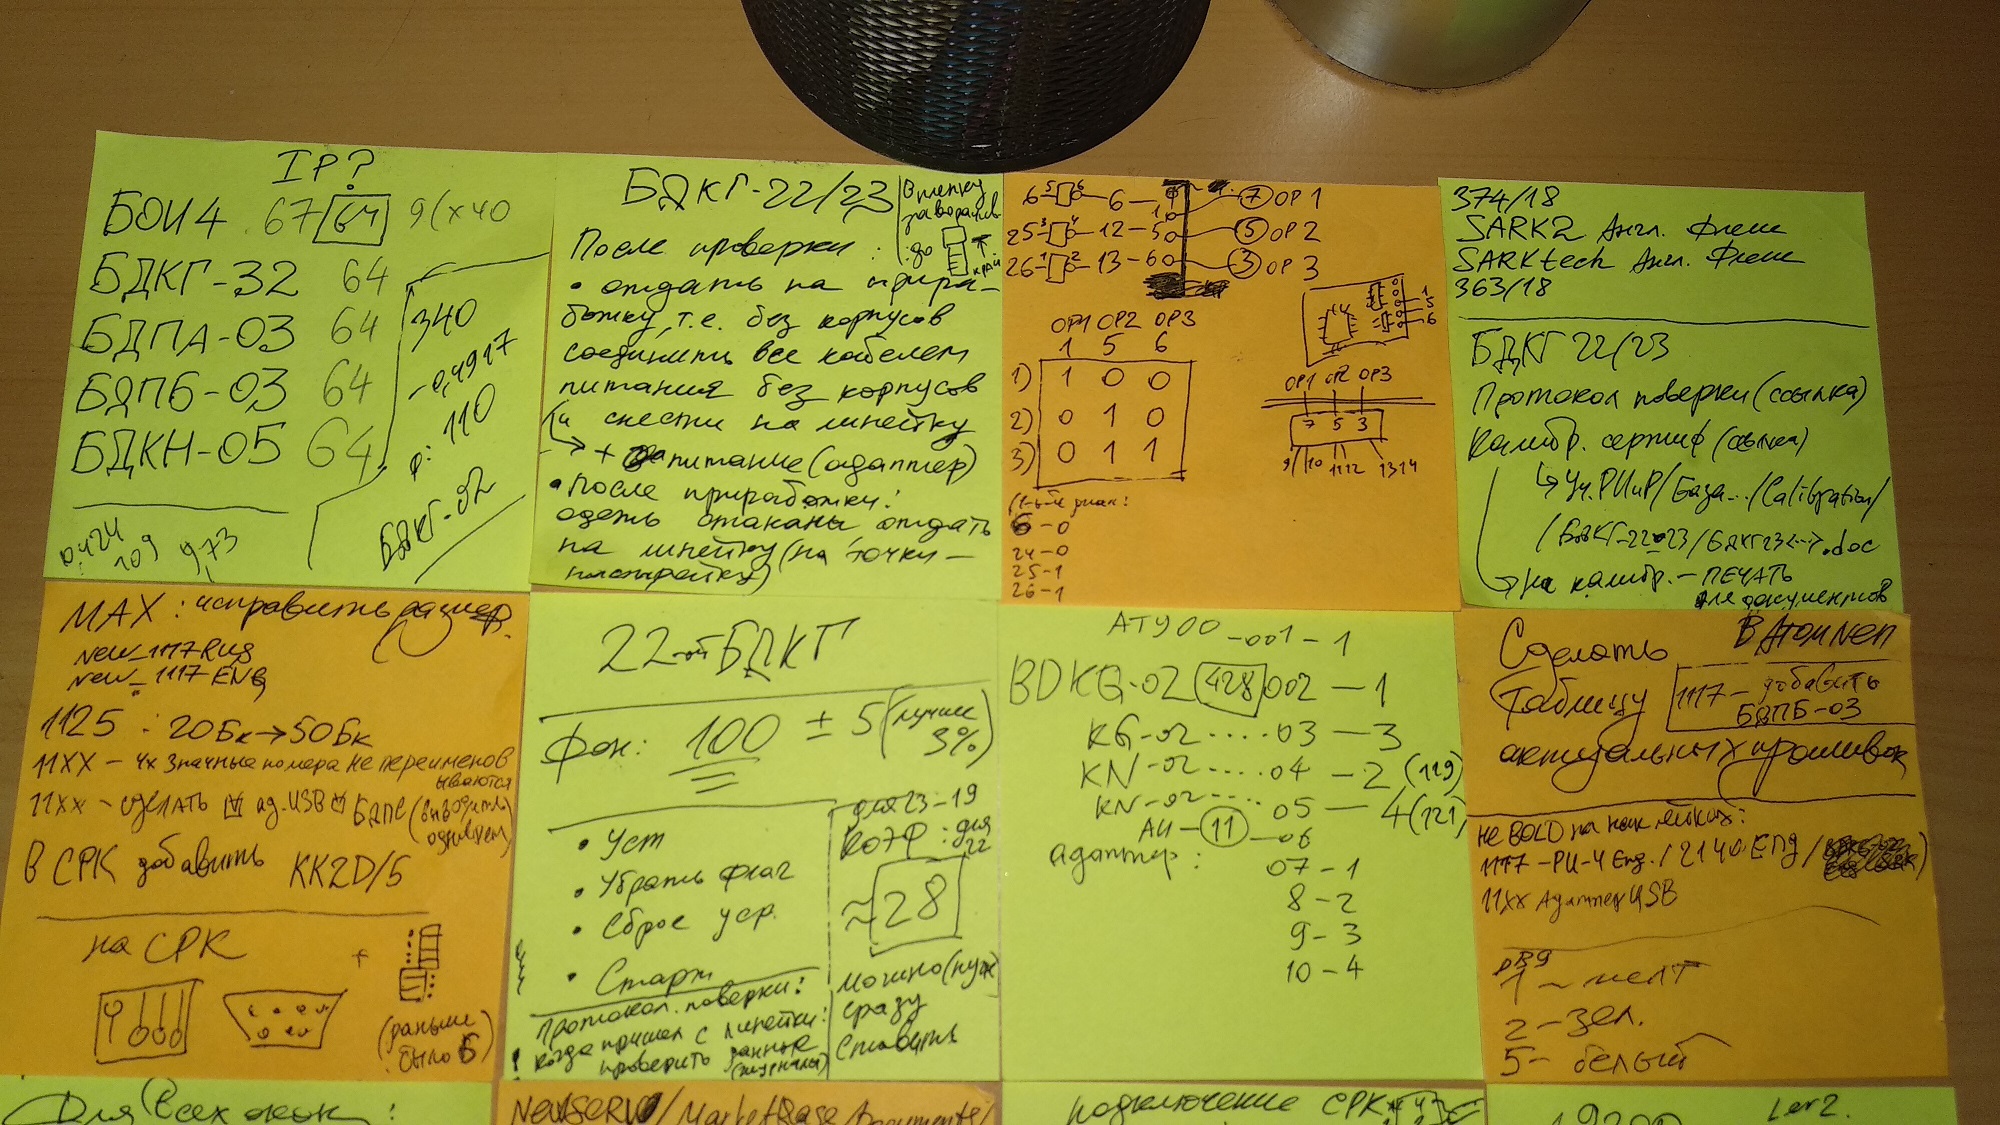 IP?
БОИ4 67 64 9(x40
БДКГ-32 64
БДПА-03 64
БДПБ-03 64
БДКН-05 64
340
-0,4917
р: 110
БДКГ-02
0,424
109
9,73
БДКГ-22/23
После проверки:
• отдать на прира-
ботку, т.е. без корпусов
соединить все кабелем
питания без корпусов
и снести на линейку
→ + питание (адаптер)
• После приработки:
одеть стаканы отдать
на линейку (на точки-
до
край
6 5 6 6 7 ОР1
25 3 4 12 - 5 5 ОР2
26 1 2 13 - 6 3 ОР3
1
5
6
ОР1 ОР2 ОР3
1 5 6
1) 1 0 0
2) 0 1 0
3) 0 1 1
ОР1 ОР2 ОР3
7 5 3
9 10 11 12 13 14
6-0
24-0
25-1
26-1
374/18
SARK2 Англ. Флеш
SARKtech Англ. Флеш
363/18
БДКГ 22/23
Протокол поверки (ссылка)
Калибр. сертиф (ссылка)
↳ Уч.РИиР/База.../Calibration/
/БДКГ-22-23/БДКГ23<..>.doc
→ на калибр. - ПЕЧАТЬ
для документов
MAX: исправить размер.
New_1117Rus
New_1117ENG
1125 : 20Бк→50Бк
11XX - 4х значные номера не переименов
ываются
11XX - сделать ад.USB БДПС (выводить
одинвет)
В СРК добавить КК2D/5
на СРК
+
(раньше
было Б)
22-ой БДКГ
Фон: 100 ± 5 (лучше
3%)
• Уст
• Убрать флаг
• Сброс уср.
• Старт
для 23-19
КОЭФ: для
22
≈28
можно (нуж)
сразу
ставить
Протокол поверки:
! когда пришел с линейки:
проверить данные
(журнала)
АТУ00-001-1
BDKG-02 428 002 — 1
KG-02 .... 03 — 3
KN-02 .... 04 — 2 (119)
KN-02 .... 05 — 4 (121)
АИ - 11 - 06
адаптер: 07-1
8-2
9-3
10-4
Сделать в AtomNen
таблицу
1117 - добавить
БДПБ-03
актуальных прошивок
не BOLD на наклейках:
1117-РИ-4 Eng./2140 ЕПд/
11XX Адаптер USB
DB9
1 - желт
2 - зел.
5 - белый
Для всех
NewSERV/MarketBase/Documents/
подключение СРК
19200